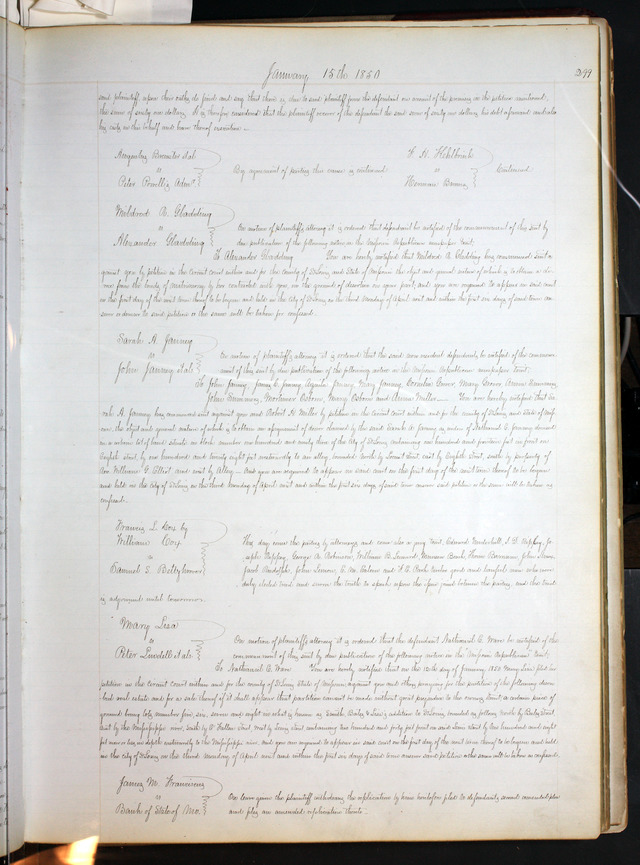 January 15th 1850
299
said plaintiff, upon their oaths do find and say that there is due to said plaintiff from the defendant on account of the promises in the petition mentioned,
the sum of sixty one dollars. It is therefore considered that the plaintiff recover of the defendant the said sum of sixty one dollars, his debt aforesaid and also
his costs in this behalf and have thereof execution.
Augustus Brewster et al
vs
Peter Admr.
By agreement of parties this cause is continued
F. H.
vs
Herman
Continued
Mildred A. Gladding
vs
Alexander Gladding
On motion of plaintiff's attorney it is ordered that defendant be notified of the commencement of this suit by
due publication of the following notice in the Missouri Republican newspaper, to wit;
To Alexander Gladding You are hereby notified that Mildred A. Gladding has commenced suit a-
gainst you by petition in the Circuit court within and for the county of St Louis and State of Missouri the object and general nature of which is to obtain a di-
vorce from the bonds of matrimony here contracted with you on the ground of desertion on your part, and you are required to appear in said court
on the first day of the next term thereof to be begun and held in the City of St Louis on the third Monday of April next and within the first six days of said term an-
swer or demur to said petition or the same will be taken for confessed.
Sarah A. Janney
vs
John Janney et als
On motion of plaintiff's attorney it is ordered that the said non resident defendants, be notified of the commence-
ment of this suit by due publication of the following notice in the Missouri Republican newspaper to wit:
To John Janney, Janney, Janney, Mary Janney, Cornelius Mary
John Mortimer Osborn, Mary Osborn and Miller You are hereby notified that Sa-
rah A. Janney has commenced suit against you and Robert H. Miller by petition in the Circuit court within and for the county of St Louis and State of Miss-
ouri, the object and general nature of which is to obtain an assignment of dower claimed by the said Sarah A. Janney as widow of Nathaniel E. Janney deceased
in a certain lot of land situate in block number one hundred and ninety three of the City of St Louis, containing one hundred and feet in front on
Eighth street, by one hundred and twenty eight feet eastwardly to an alley bounded north by Locust street east by Eighth Street, south by property of
Rev William G. Elliot and west by Alley And you are required to appear in said court on the first day of the next term thereof to be begun
and held in the City of St Louis on the third Monday of April next and within the first six days of said term answer said petition or the same will be taken as
confessed.
Francis L. Cox by
William Cox
vs
Samuel S.
This day come the parties by attorneys and come also a jury to wit, Edward J. B. Jo-
seph George A. Robinson, William B. Bush, John
Jacob Rudolph, John and F. B. twelve good and lawful men who were
duly elected tried and sworn the truth to speak upon the issue joined between the parties, and the trial
is adjourned until tomorrow.
Mary Lisa
vs
Peter Lindell et als
On motion of plaintiff's attorney it is ordered that the defendant Nathaniel E. Ware be notified of the
commencement of this suit by due publication of the following notice in the Missouri Republican to wit;
To Nathaniel E. Ware You are hereby notified that on the 12th day of January 1850 Mary Lisa filed her
petition in the Circuit Court within and for the county of St Louis State of Missouri against you and others praying for the partition of the following descri-
bed real estate and for a sale thereof if it shall appear that partition cannot be made without great prejudice to the owners to wit, a certain piece of
ground being lots number five, six, seven and eight in what is known as Smith, Bates & Lisa's addition to St Louis bounded as following North by Bates Street
East by the Mississippi river, south by Street west by Street containing two hundred and forty feet front on said street by one hundred and eight
feet more or less in depth eastwardly to the Mississippi river, and you are required to appear in said court on the first day of the next term thereof to be begun and held
in the city of St Louis on the third Monday of April next and within the first six days of said term answer said petition or the same will be taken as confessed.
James M. Franciscus
vs
Bank of State of Mo.
On leave given the plaintiff withdraws the replication by him heretofore filed to defendant's answer
and files an amended replication thereto.